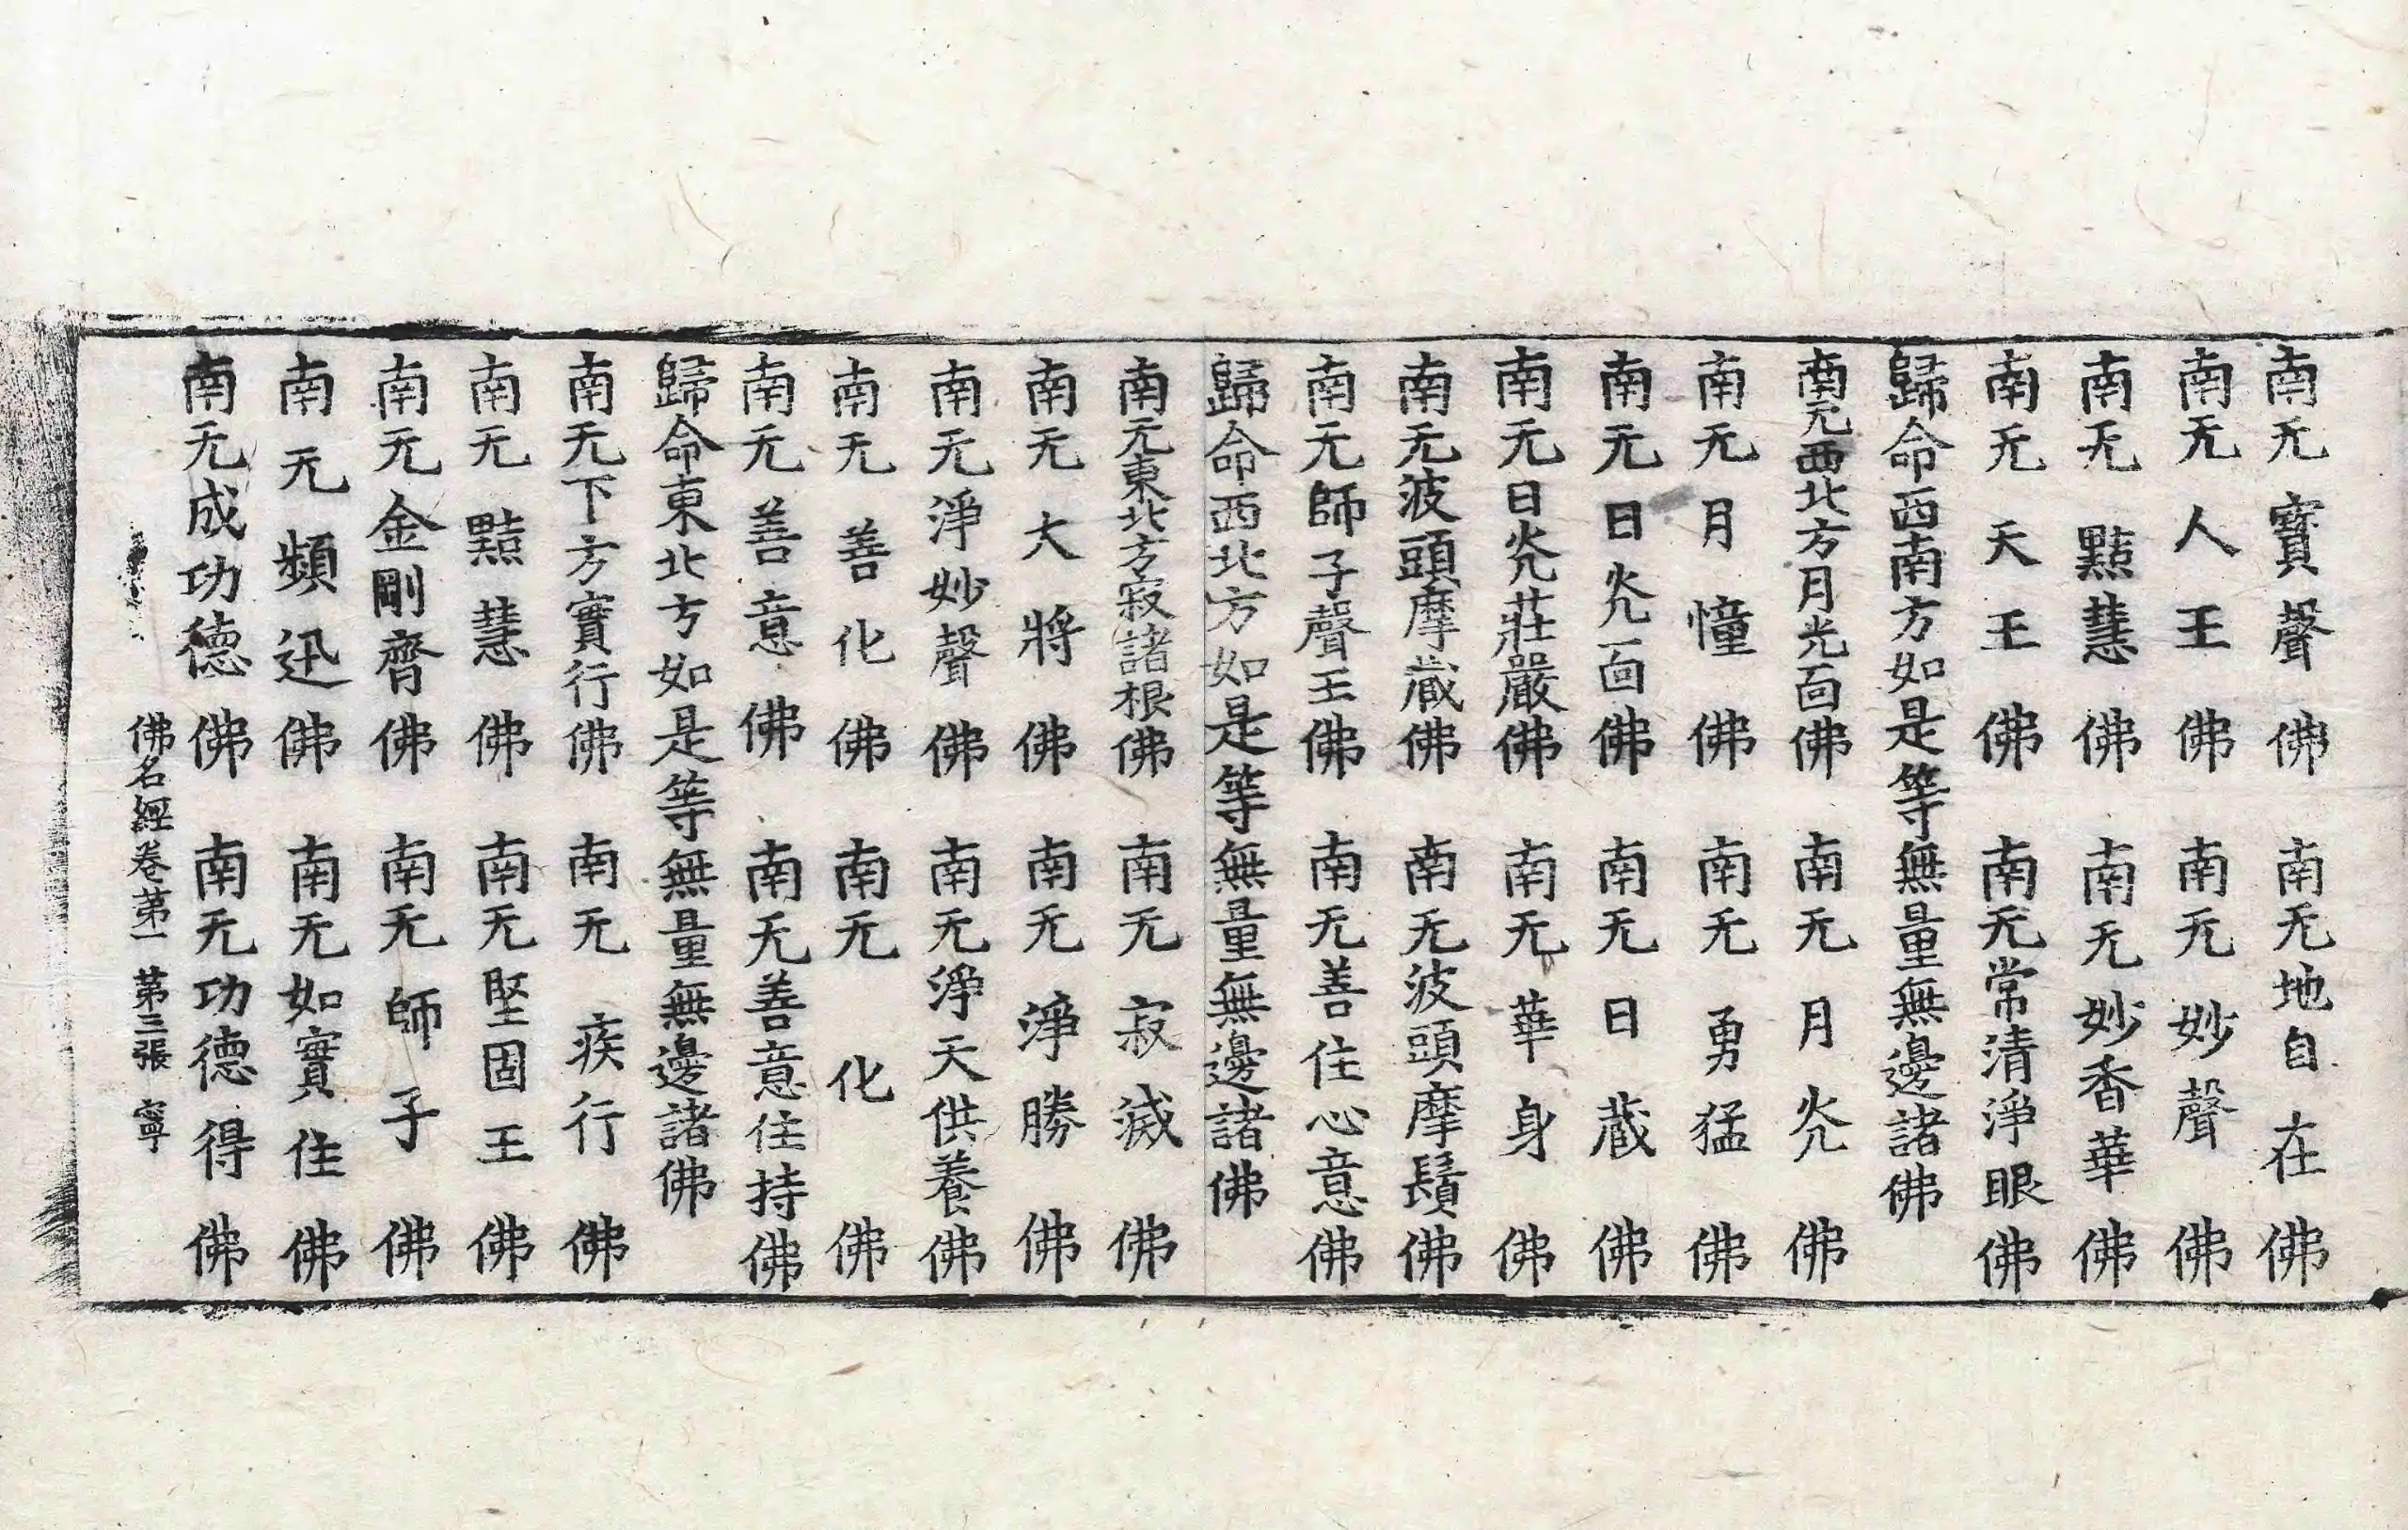 南无寶聲佛 南无地自在佛
南无人王佛 南无妙聲佛
南无黠慧佛 南无妙香華佛
南无天王佛 南无常清淨眼佛
歸命西南方如是等無量無邊諸佛
南无西北方月光面佛 南无月灮佛
南无月憧佛 南无勇猛佛
南无日灮面佛 南无日蔵佛
南无日灮莊嚴佛 南无華身佛
南无波頭摩蔵佛 南无波頭摩鬚佛
南无師子聲王佛 南无善住心意佛
歸命西北方如是等無量無邊諸佛
南无東北方寂諸根佛 南无寂滅佛
南无大將佛 南无淨勝佛
南无淨妙聲佛 南无淨天供養佛
南无善化佛 南无化佛
南无善意佛 南无善意住持佛
歸命東北方如是等無量無邊諸佛
南无下方實行佛 南无疾行佛
南无黠慧佛 南无堅固王佛
南无金剛齊佛 南无師子佛
南无頻迅佛 南无如實住佛
南无成功德佛 南无功德得佛
佛名經卷苐一 苐三張 寧